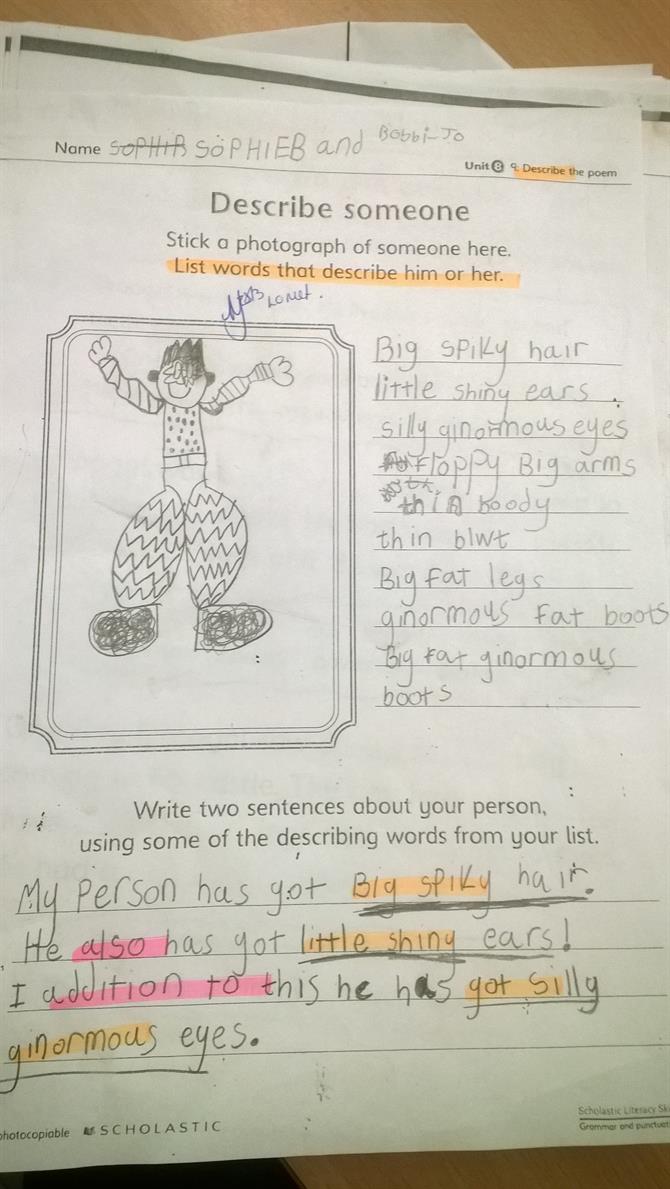 Name SOPHIB SOPHIEB and Bobbi-Jo
Unit 8 9: Describe the poem
Describe someone
Stick a photograph of someone here.
List words that describe him or her.
Big spiky hair
little shiny ears.
silly ginormous eyes
Floppy Big arms
thin boody
thin blwt
Big fat legs
ginormous fat boots
Big fat ginormous
boots
Write two sentences about your person,
using some of the describing words from your list.
My person has got Big spiky hair.
He also has got little shiny ears!
I addition to this he has got silly
ginormous eyes.
photocopiable SCHOLASTIC
Scholastic Literacy Ski
Grammar and punctuat